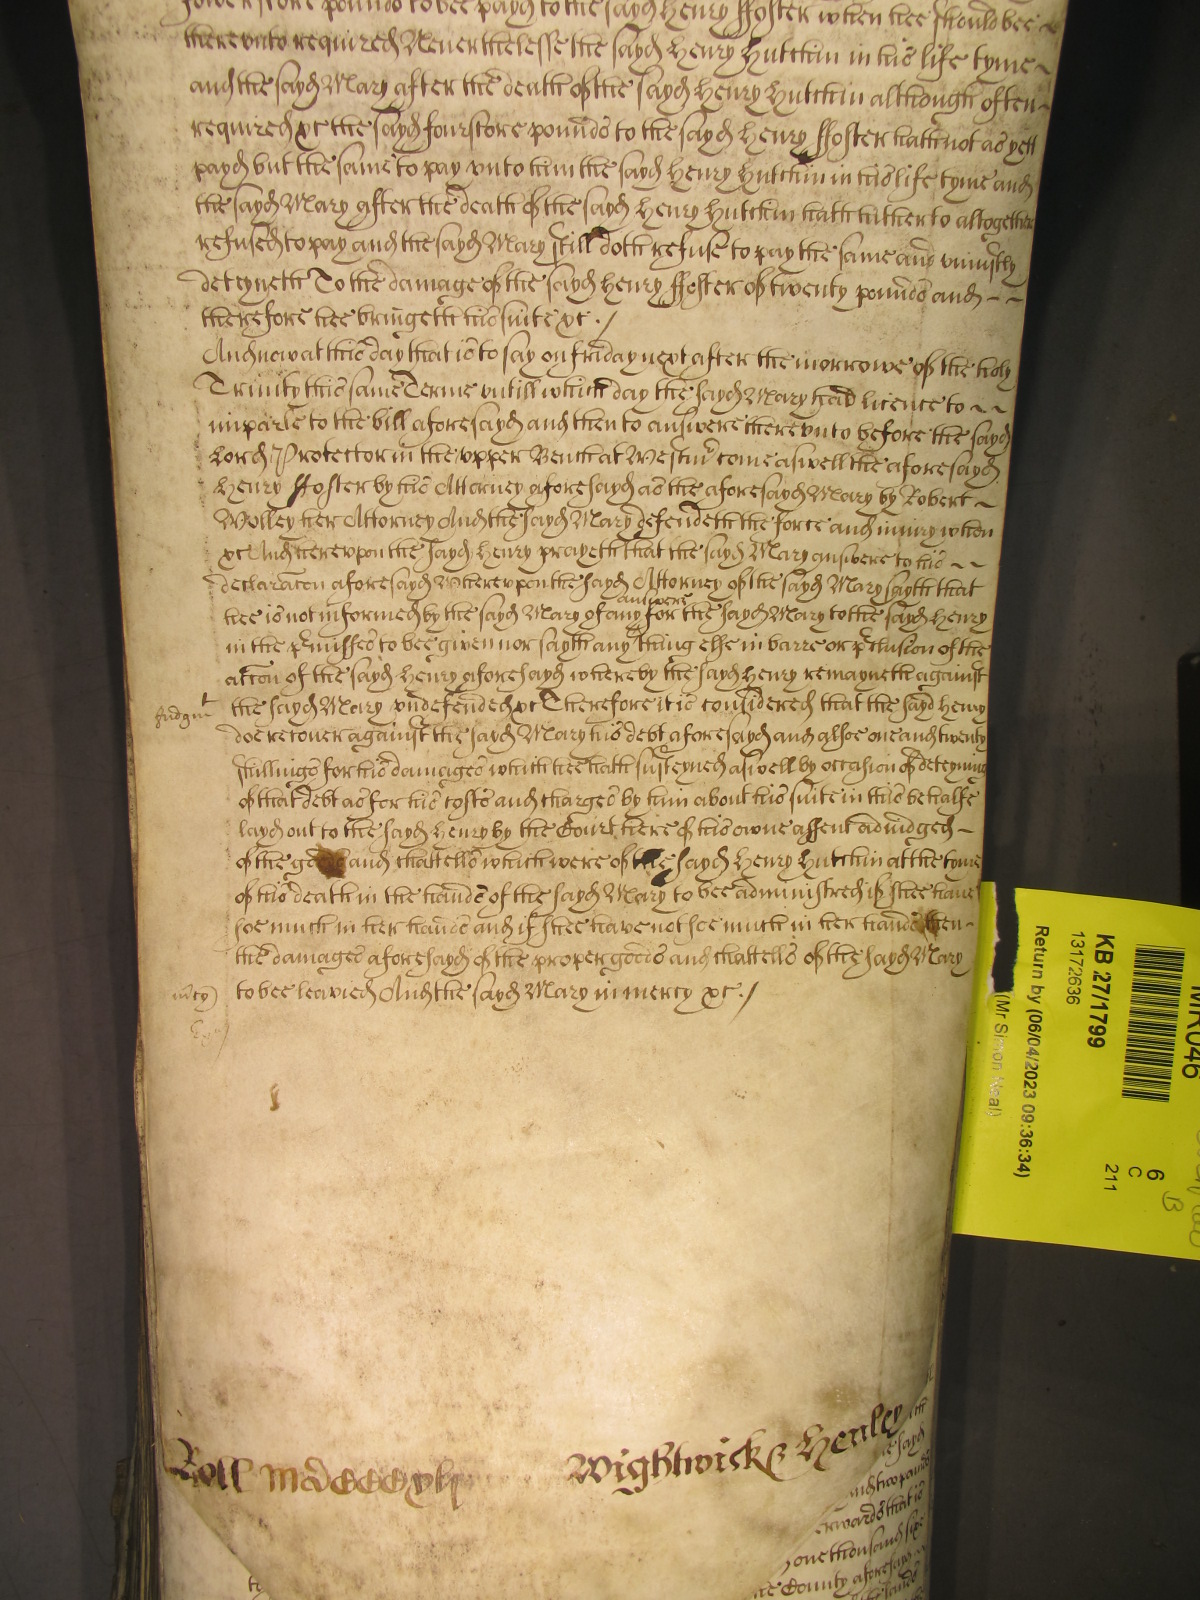 fower score pounds to bee payd to the sayd Henry ffoster when hee should bee
therevnto required Neverthelesse the sayd Henry Hutchin in his life tyme
and the sayd Mary after the death of the sayd Henry Hutchin although often
required &c the sayd fourscore pounds to the sayd Henry ffoster hath not as yett
payd but the same to pay vnto him the sayd Henry Hutchin in his life tyme and
the sayd Mary after the death of the sayd Henry Hutchin hath hitherto altogether
refused to pay and the sayd Mary still doth refuse to pay the same and vniustly
deteyneth To the damage of the sayd Henry ffoster of twenty pounds and
therefore hee bringeth his suite &c ./
And now at this day that is to say on friday next after the morrowe of the holy
Trinity this same Terme vntill which day the sayd Mary had licence to
imparle to the bill aforesayd and then to answere therevnto before the sayd
Lord Protector in the vpper Bench at Westmr come aswell the aforesayd
Henry ffoster by his Attorney aforesayd as the aforesayd Mary by Robert
Wolley her Attorney And the sayd Mary defendeth the force and iniury when
&c And herevpon the sayd Henry prayeth that the sayd Mary answere to his
declaracon aforesayd Wherevpon the sayd Attorney of the sayd Mary sayth that
hee is not informed by the sayd Mary of any answere for the sayd Mary to the sayd Henry
in the pmisses to bee given nor sayth any thing else in barre or pclusion of the
accon of the sayd Henry aforesayd whereby the sayd Henry remayneth against
Judgmt the sayd Mary vndefended &c Therefore it is considered that the sayd Henry
doe recover against the sayd Mary his debt aforesayd and alsoe one and twenty
shillings for his damages which hee hath susteyned aswell by occasion of deteyning
of that debt as for his costs and charges by him about his suite in this behalfe
layd out to the sayd Henry by the Court here of his owne assent adiudged
of the goods and chattells which were of the sayd Henry Hutchin at the tyme
of his death in the hands of the sayd Mary to bee administred if shee have
soe much in her hands and if shee have not soe much in her hands then
the damages aforesayd of the proper goods and chattells of the sayd Mary
mcy to bee leavied And the sayd Mary in mercy &c ./
Roll Wightwick & Henley
sayd
and two pounds
wards that is
one thousand six
County aforesayd
MR046
KB 27/1799
13172636
Return by (06/04/2023 09:36:34)
(Mr Simon Neal)
6
C
211
B